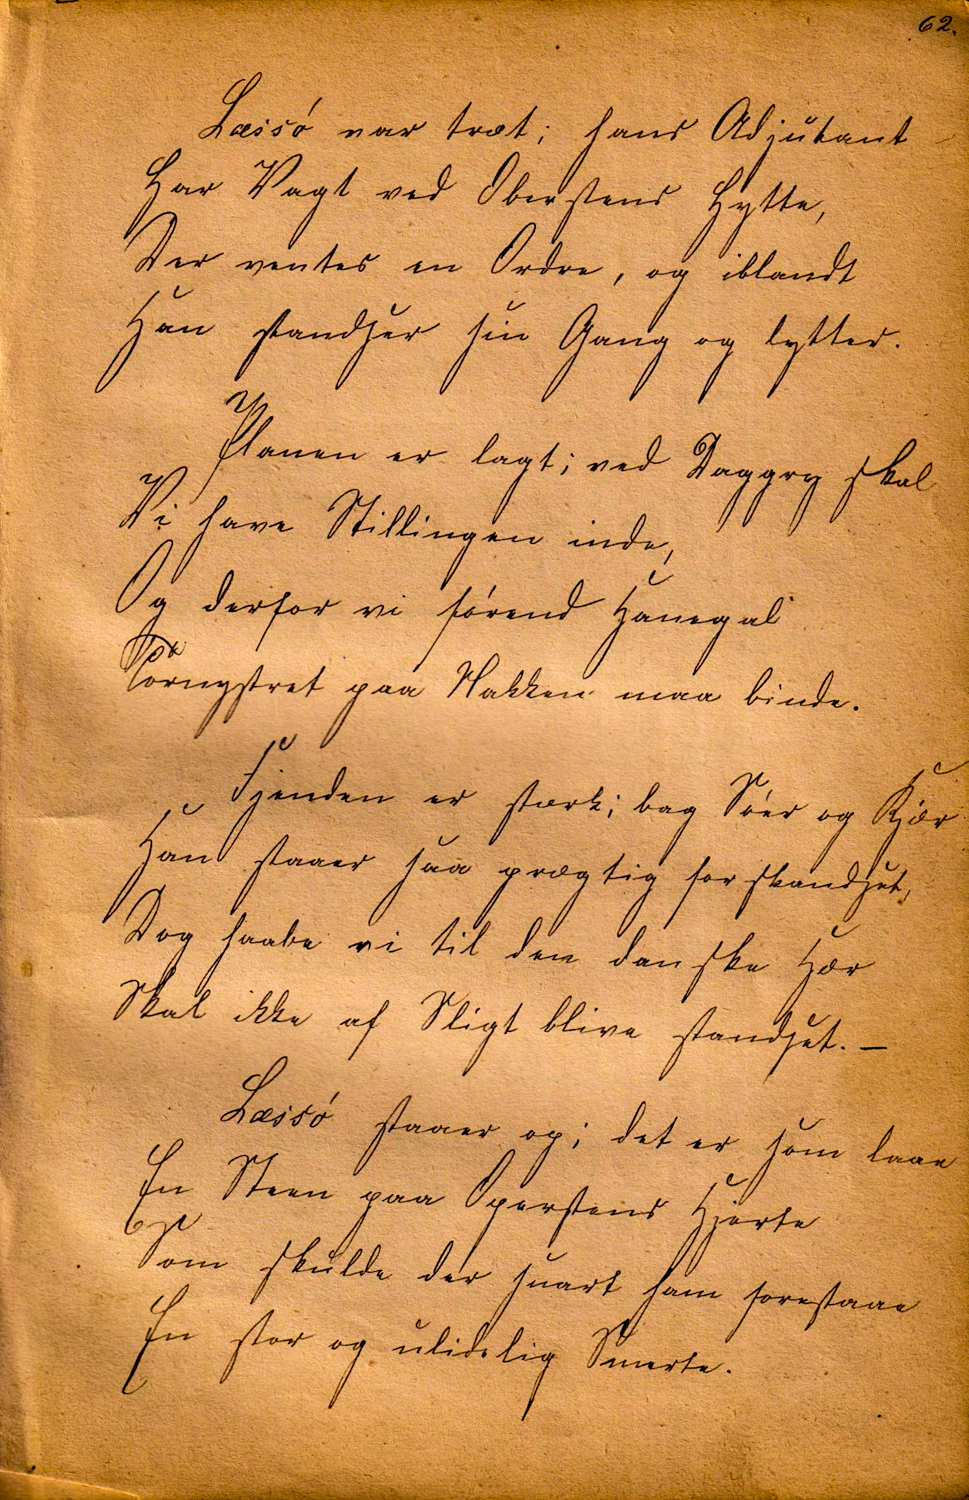 62.
Læssó var træt; hans Adjutant
Har Vagt ved Oberstens Hytte,
Der ventes en Ordre, og iblandt
Han standser sin Gang og lytter.
Planen er lagt; ved Daggry skal
Vi have Stillingen inde,
Og derfor vi förend Hanegal
Tornystret paa Nakken maa binde.
Fjenden er stærk; bag Söer og Kjær
Han staaer saa prægtig forskandset,
Dog haabe vi til den danske Hær
Skal ikke af Sligt blive standset. —
Læssó staaer op; det er som laae
En Steen paa Operstens Hjerte
Som skulde der snart ham forestaae
En stor og ulidelig Smerte.